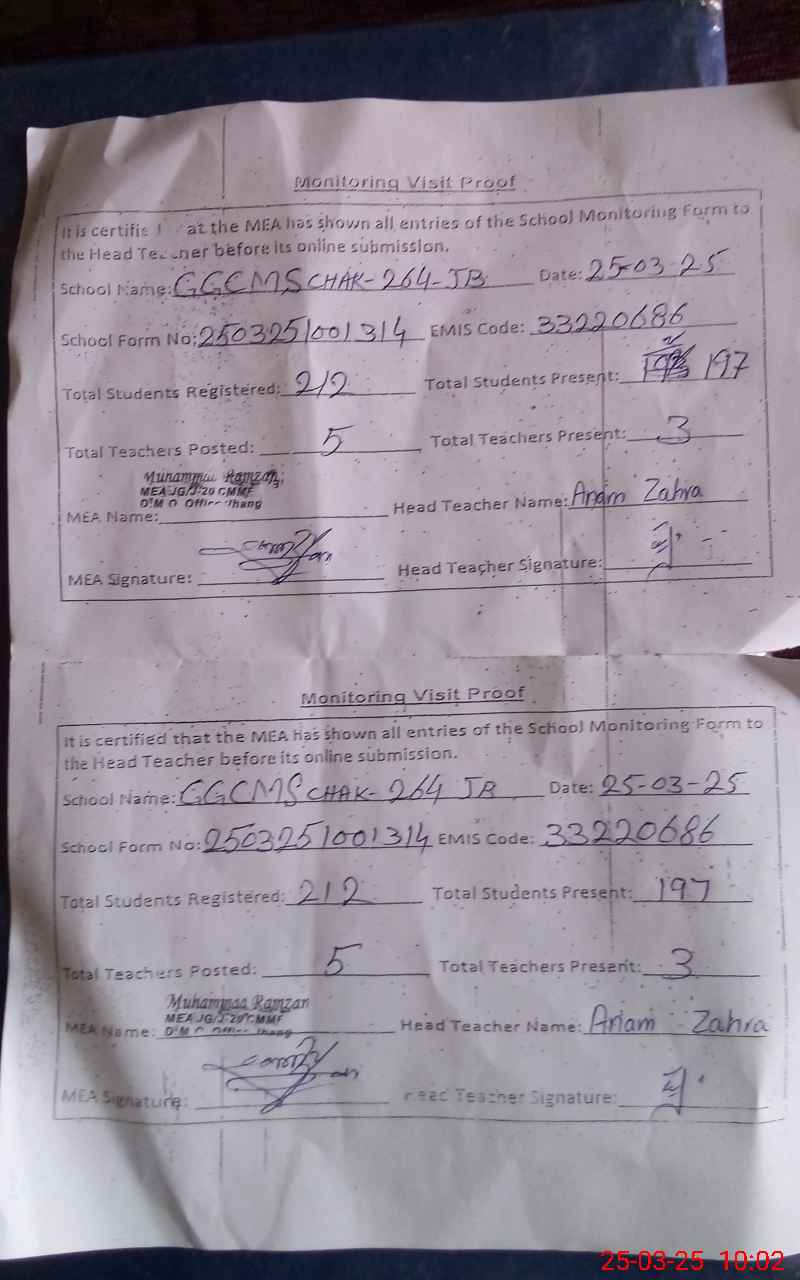 Monitoring Visit Proof
It is certifie at the MEA has shown all entries of the School Monitoring Form to
the Head Teacher before its online submission.
School Name: GGCMS CHAK-264-JB Date: 25-03-25
School Form No: 2503251001314 EMIS Code: 33220686
Total Students Registered: 212 Total Students Present: 197
Total Teachers Posted: 5 Total Teachers Present: 3
Muhammad Ramzan
MEA JG/J-20 CMMF
D.M.O Office Jhang
MEA Name: Head Teacher Name: Anam Zahra
MEA Signature: Head Teacher Signature:
Monitoring Visit Proof
It is certified that the MEA has shown all entries of the School Monitoring Form to
the Head Teacher before its online submission.
School Name: GGCMS CHAK-264 JB Date: 25-03-25
School Form No: 2503251001314 EMIS Code: 33220686
Total Students Registered: 212 Total Students Present: 197
Total Teachers Posted: 5 Total Teachers Present: 3
Muhammad Ramzan
MEA JG/J-20 CMMF
D.M.O Office Jhang
MEA Name: Head Teacher Name: Anam Zahra
MEA Signature: Head Teacher Signature:
25-03-25 10:02